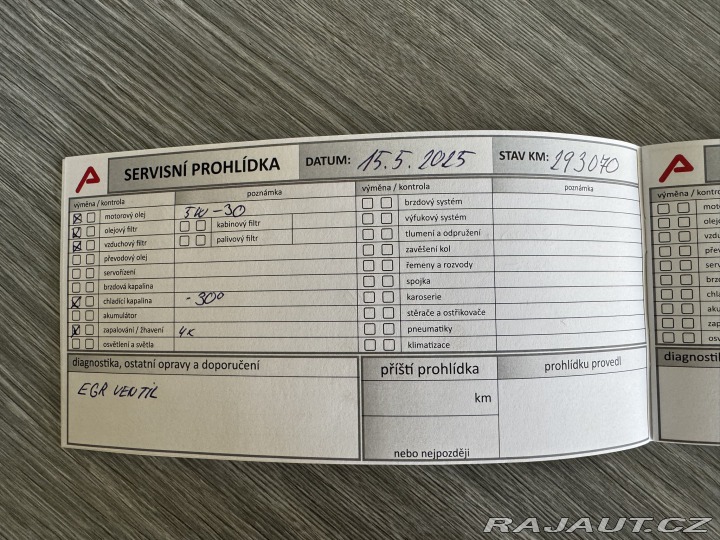 SERVISNÍ PROHLÍDKA DATUM: 15.5.2025 STAV KM: 293070
výměna / kontrola poznámka výměna / kontrola poznámka
motorový olej 5W-30 brzdový systém
olejový filtr kabinový filtr výfukový systém
vzduchový filtr palivový filtr tlumení a odpružení
převodový olej zavěšení kol
servořízení řemeny a rozvody
brzdová kapalina spojka
chladící kapalina -30° karoserie
akumulátor stěrače a ostřikovače
zapalování / žhavení 4x pneumatiky
osvětlení a světla klimatizace
diagnostika, ostatní opravy a doporučení příští prohlídka prohlídku provedl
EGR VENTIL
km
nebo nejpozději
výměna / kontrola
moto
olej
vzdu
přev
serv
brzd
chla
aku
zap
osv
diagnosti
RAJAUT.CZ